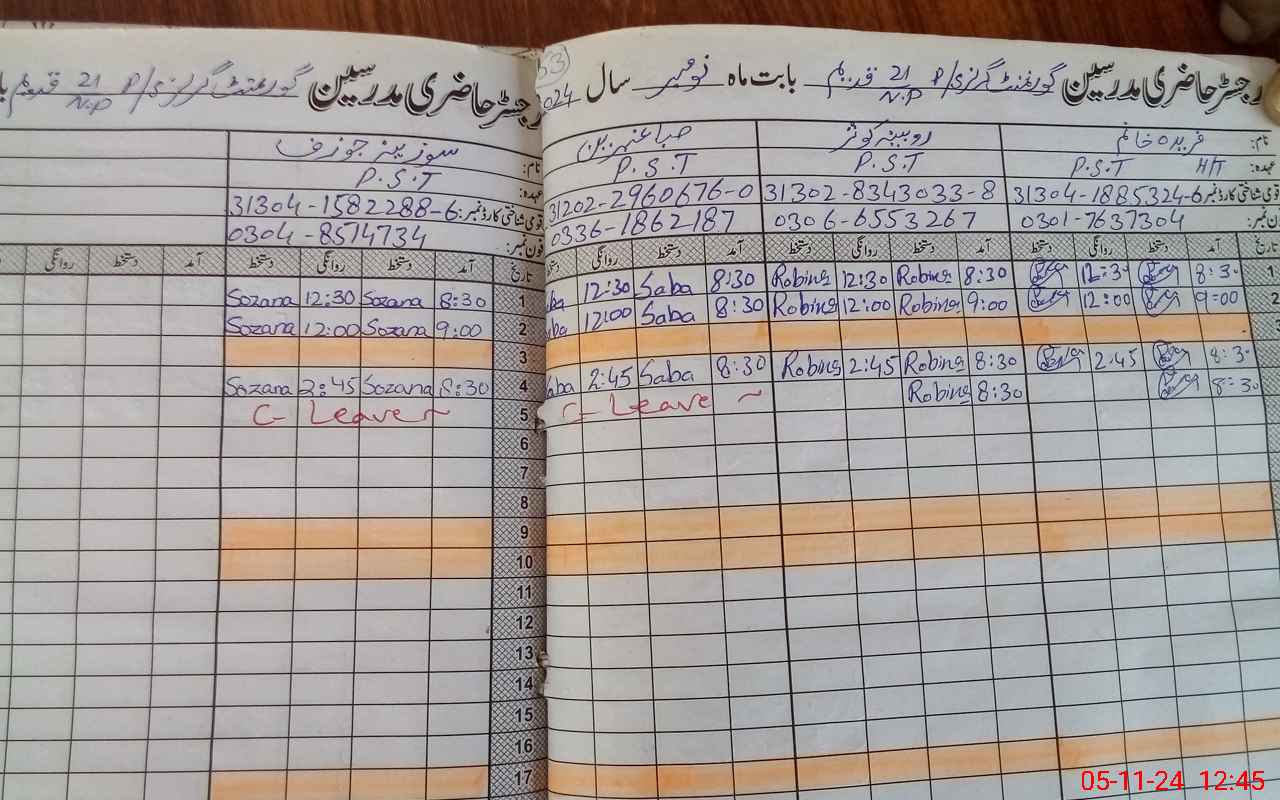 رجسٹر حاضری مدرسین گورنمنٹ گرلز ی/P 21 N.P قدیم بابت ماہ نومبر سال 2024
53
نام: فریدہ خانم روبینہ کوثر صبا عنبرین
عہدہ: H/T P.S.T P.S.T P.S.T
قومی شناختی کارڈ نمبر: 31304-1885324-6 31302-8343033-8 31202-2960676-0
فون نمبر: 0301-7637304 0306-6553267 0336-1862187
تاریخ آمد دستخط روانگی دستخط آمد دستخط روانگی دستخط آمد دستخط روانگی دستخط
1 8:30 12:30 8:30 Robina 12:30 Robina 8:30 Saba 12:30
2 9:00 12:00 9:00 Robina 12:00 Robina 8:30 Saba 12:00
8:30 2:45 8:30 Robina 2:45 Robina 8:30 Saba 2:45 Saba
8:30 8:30 Robina C- Leave
رجسٹر حاضری مدرسین گورنمنٹ گرلز ی/P 21 N.P قدیم
نام: سوزینہ جوزف
عہدہ: P.S.T
قومی شناختی کارڈ نمبر: 31304-1582288-6
فون نمبر: 0304-8514734
تاریخ آمد دستخط روانگی دستخط آمد دستخط روانگی
1 8:30 Sozana 12:30 Sozana
2 9:00 Sozana 12:00 Sozana
3
4 8:30 Sozana 2:45 Sozana
5 C- Leave
6
7
8
9
10
11
12
13
14
15
16
17
05-11-24 12:45